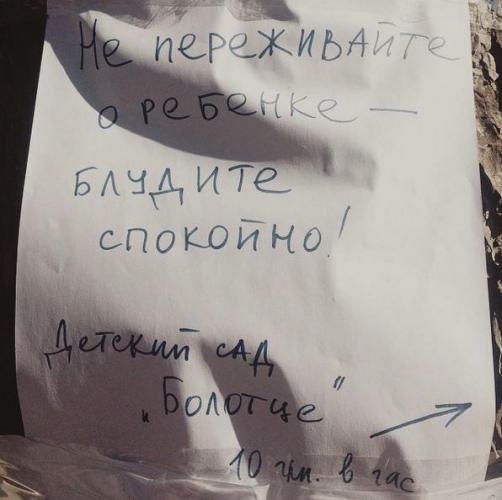 Не переживайте
о ребенке —
блудите
спокойно!
Детский сад
„Болотце"
10 гмп. в час